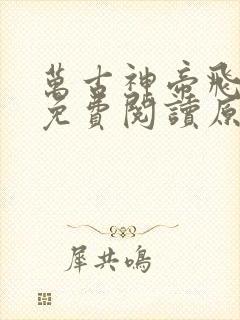 萬古神帝飛
免費閱讀原
犀共鳴